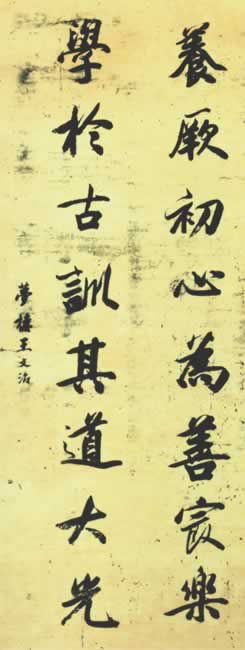 養厥初心為善冣樂
學於古訓其道大光
夢樓王文治